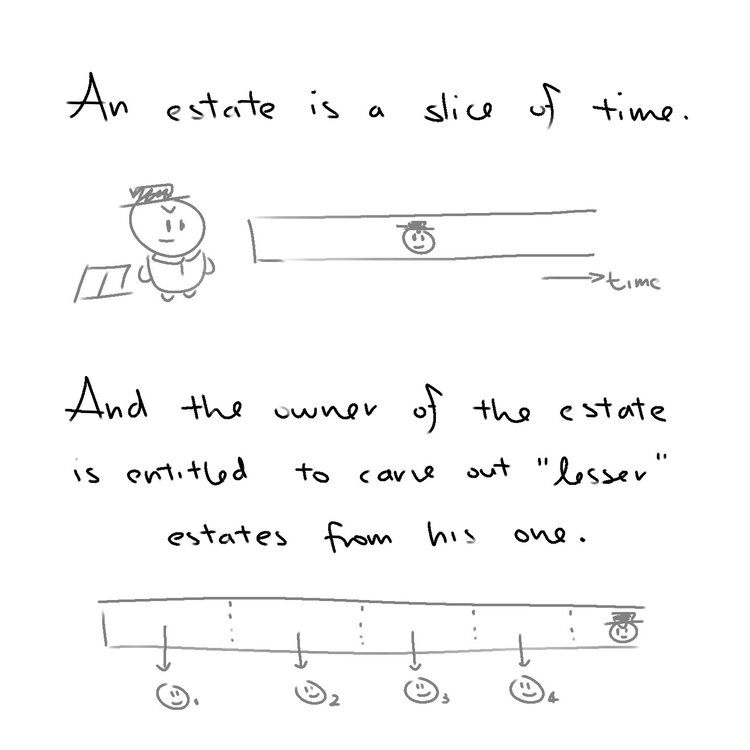 An estate is a slice of time.
time
And the owner of the estate
is entitled to carve out "lesser"
estates from his one.
1 2 3 4